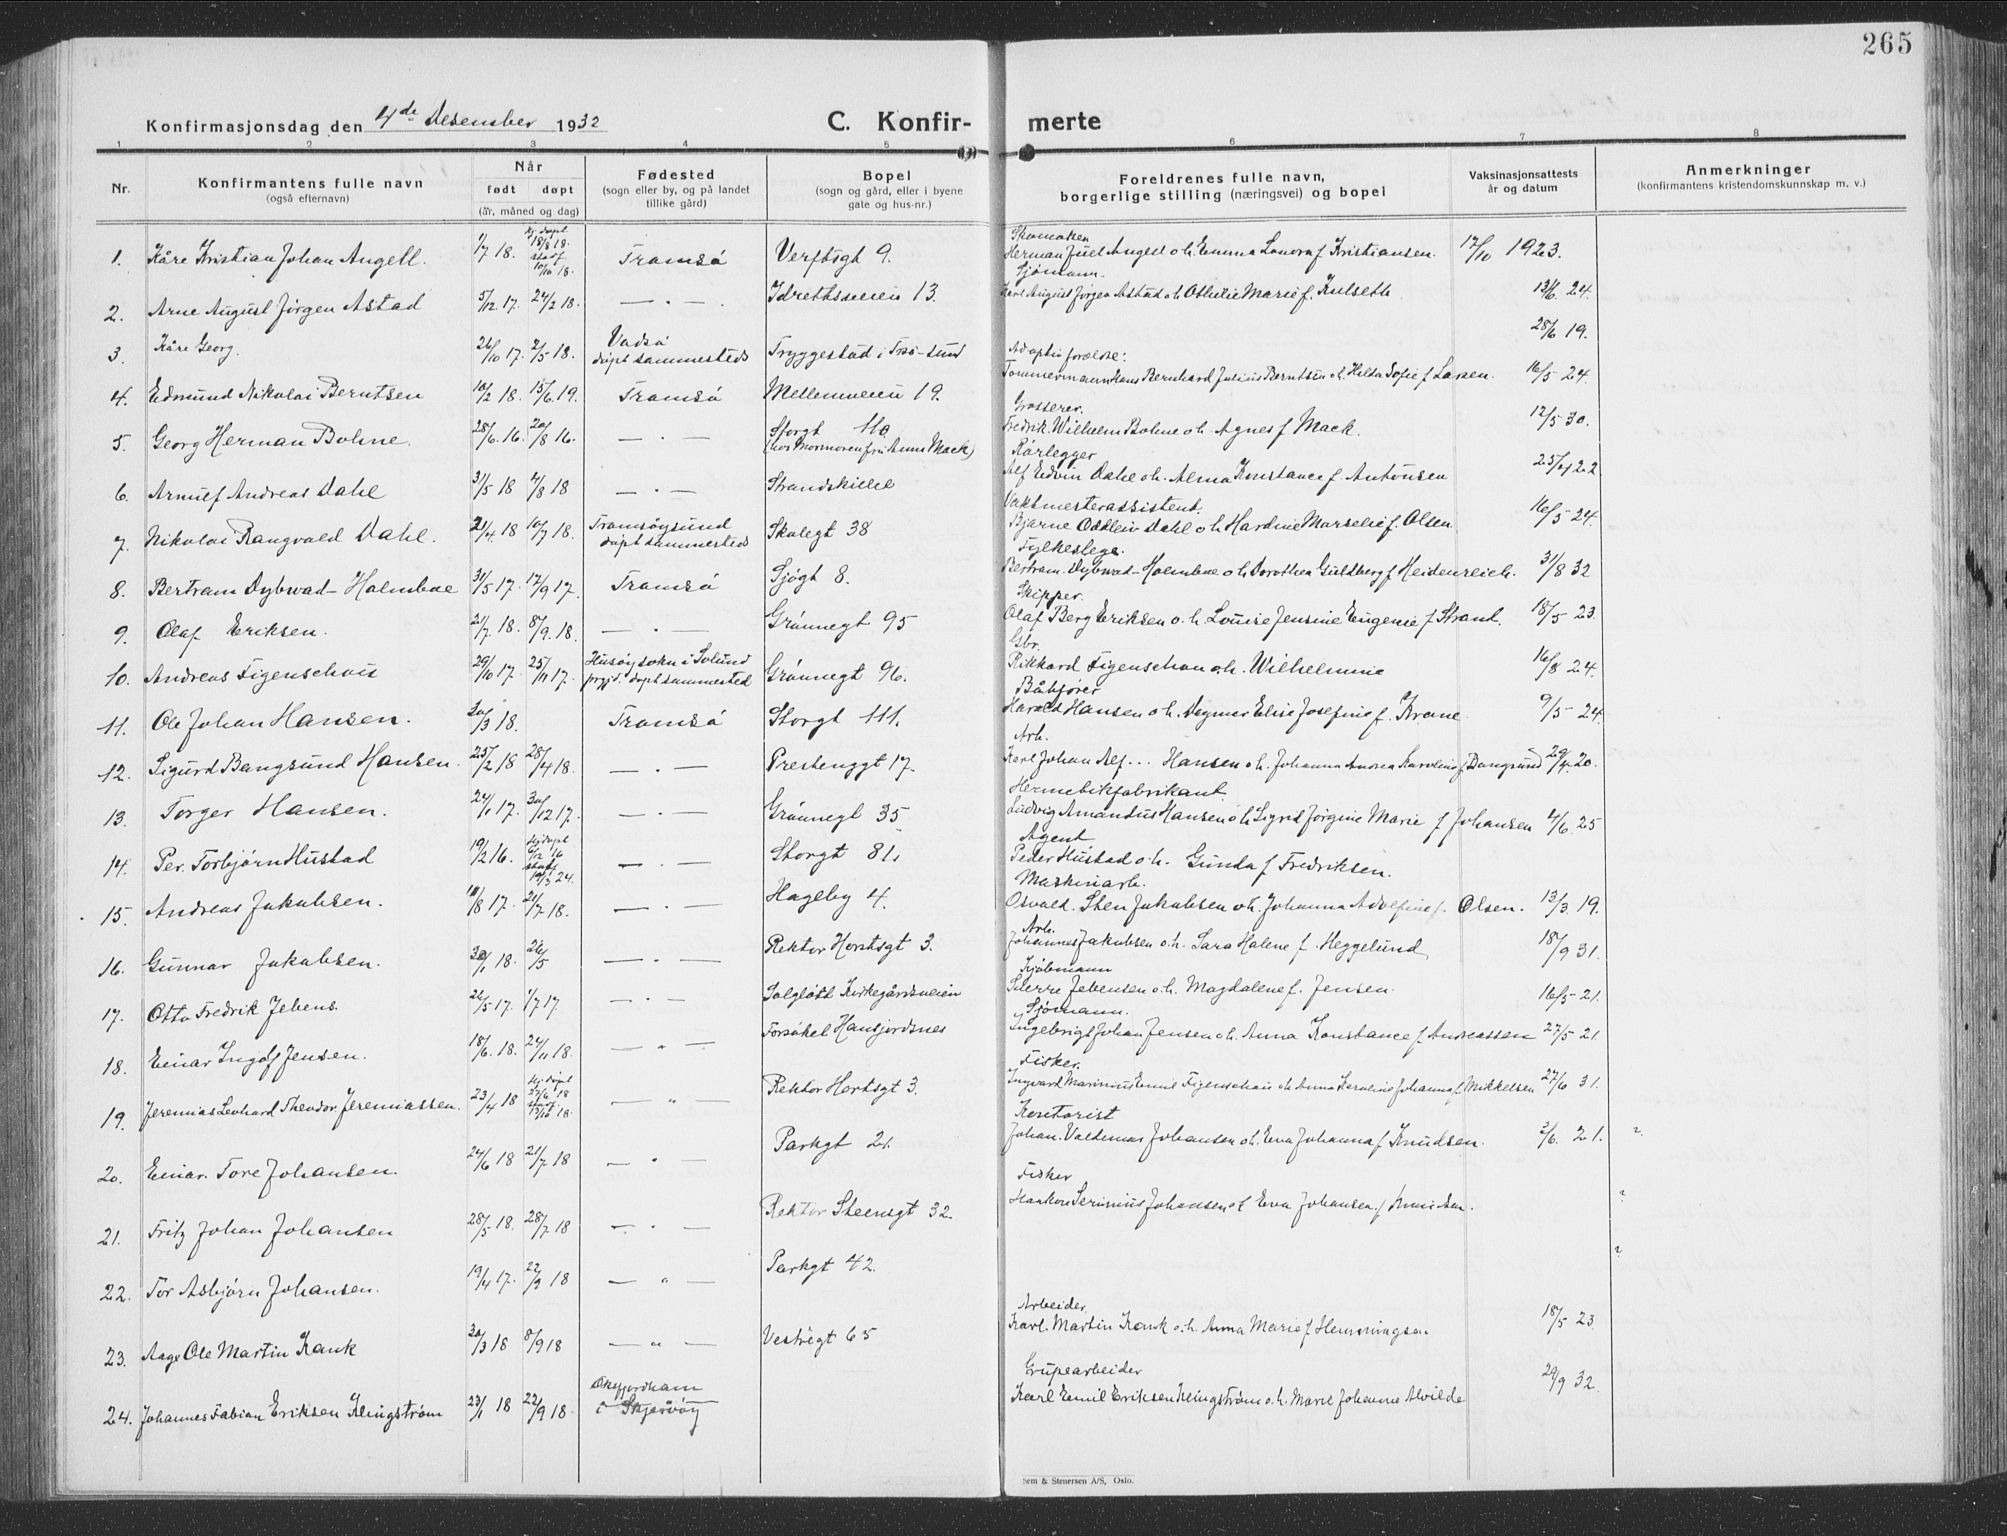 265
Konfirmasjonsdag den 4de Desember 1932
C. Konfir-merte
1 2 3 4 5 6 7 8
Nr.
Konfirmantens fulle navn
(også efternavn)
Når
født døpt
(år, måned og dag)
Fødested
(sogn eller by, og på landet
tillike gård)
Bopel
(sogn og gård, eller i byene
gate og hus-nr.)
Foreldrenes fulle navn,
borgerlige stilling (næringsvei) og bopel
Vaksinasjonsattests
år og datum
Anmerkninger
(konfirmantens kristendomskunnskap m. v.)
1. Kåre Kristian Johan Angell. 1/7 18. hj.døpt 18/8 18. stadf 10/10 18. Tromsø Verftsgt 9. Skomaker Herman Juel Angell o.h. Emma Lovera f. Kristiansen. 12/10 1923.
2. Arne August Jørgen Astad 5/12 17. 24/2 18. — . — . Idrettsveien 13. Sjømann. Karl August Jørgen Astad o.h. Othelie Marie f. Kulseth 13/6. 24.
3. Kåre Georg. 26/10 17. 2/5 18. Vadsø døpt sammesteds Tryggestad i Tsø-sund 28/6 19.
4. Edmund Nikolai Berntsen 10/2 18. 15/6. 19. Tromsø Mellemveien 19. Adoptivforeldre: Tømmermann Hans Bernhard Julius Berntsen o.h. Hilda Sofie f. Larsen. 16/5 24.
5. Georg Herman Bohne. 28/6. 16. 20/8 16. — . — Storgt 110 (hos Mormoren fru Anna Mack) Grosserer. Fredrik Wilhelm Bohne o.h. Agnes f Mack. 12/5 30.
6. Arnulf Andreas Dahl 31/5 18 4/8 18 — . — Strandskillet Rørlegger Alf Edvin Dahl o.h. Alma Konstance f. Antonsen 25/4 22
7. Nikolai Rangvald Dahl. 21/4 18 10/7 18. Tromsøysund døpt sammesteds Skolegt 38 Vaktmesterassistent. Bjarne Oddleiv Dahl o.h. Hardine Marselie f. Olsen 16/5 24.
8. Bertram Dybwad-Holmboe 31/5 17. 12/9 17. Tromsø Sjøgt 8. Fylkeslege. Bertram Dybwad-Holmboe o.h. Dorothea Guldberg f Heidenreich. 31/8 32
9. Olaf Eriksen. 21/7. 18. 8/9. 18. — . — Grønnegt 95 Skipper. Olaf Berg Eriksen o.h. Louise Jensine Eugenie f Strand. 18/5 23.
10. Andreas Figenschou 29/10 17. 25/11 17. Husøy sokn i Solund prgj. døpt sammested Grønnegt 96. Gbr. Rikkard Figenschou o.h. Wilhelmine 16/8 24.
11. Ole Johan Hansen. 20/3 18. Tromsø Storgt 111. Båtfører Harald Hansen o.h. Dagmar Elise Josefine f. Krane 9/5 24.
12. Sigurd Bangsund Hansen. 25/2 18 28/4 18. — . — Prestenggt 17. Arb. Karl Johan Alf ... Hansen o.h. Johanna Andrea Karoline f Bangsund 29/4. 20.
13. Torger Hansen. 24/1 17. 30/12 17. — . — Grønnegt 35 Hermetikfabrikant. Ludvig Amandus Hansen o.h. Sigrid Jørgine Marie f Johansen 4/6. 25
14. Per. Torbjørn Hustad 19/2 16. Hj.døpt 6/12 16 stadf 19/3 24. — . — Storgt 81. Agent Peder Hustad o.h. Gunda f Fredriksen.
15. Andreas Jakobsen. 11/8 17. 21/7 18. — . — Hageby 4. Maskinarb. Osvald. Sten Jakobsen o.h. Johanna Adolfine f. Olsen. 13/3. 19.
16. Gunnar Jakobsen. 30/1 18. 26/5 — . — Rektor Horstsgt 3. Arb. Johannes Jakobsen o.h. Sara Halene f. Heggelund 18/9 31.
17. Otto Fredrik Jebens. 26/5 17. 1/7 17 — . — Solgløtt Kirkegårdsveien Kjøbmann Sverre Jebensen o.h. Magdalene f. Jensen. 16/5 21.
18. Einar Ingolf Jensen. 18/6. 18. 24/11 18. — " — Forsøket Hansjordsnes Sjømann. Ingebrigt Johan Jensen o.h. Anna Konstance f. Andreassen 27/5 21.
19. Jeremias Levhard Theodor Jeremiassen. 23/4 18 Hj.døpt 27/6 18 stadf. 13/10 18. — " — Rektor Horstsgt 3. Fisker. Ingvard Marinius Emil Figenschou o.h. Anna Karoline Johanna f Mikkelsen 27/6 31.
20. Einar. Tore Johansen. 24/6 18 21/7 18 — . — Parkgt 21. Kontorist Johan. Valdemar Johansen o.h. Eva Johanna f Knudsen. 3/6. 21. ?
21. Fritz Johan Johansen 28/5 18. 28/7 18 — . — Rektor Steensgt 32. Fisker Haakon Serinius Johansen o.h. Eva Johansen f. ?
22. Tor Asbjørn Johansen. 19/4 17. 22/9 18 — " — Parkgt 42. ?
23. Aage Ole Martin Kank 20/3 18 8/9 18 — " — Vestregt 65 Arbeider. Karl. Martin Kank o.h. Anna Marie f Henningsen 18/5 23.
24. Johannes Fabian Eriksen Klingstrøm 23/1 18 22/9 18. Oksfjordhavn i Skjervøy Grubearbeider Karl Emil Eriksen Klingstrøm o.h. Marit Johanne Alvilde 29/9 32.
Sem & Stenersen A/S, Oslo.